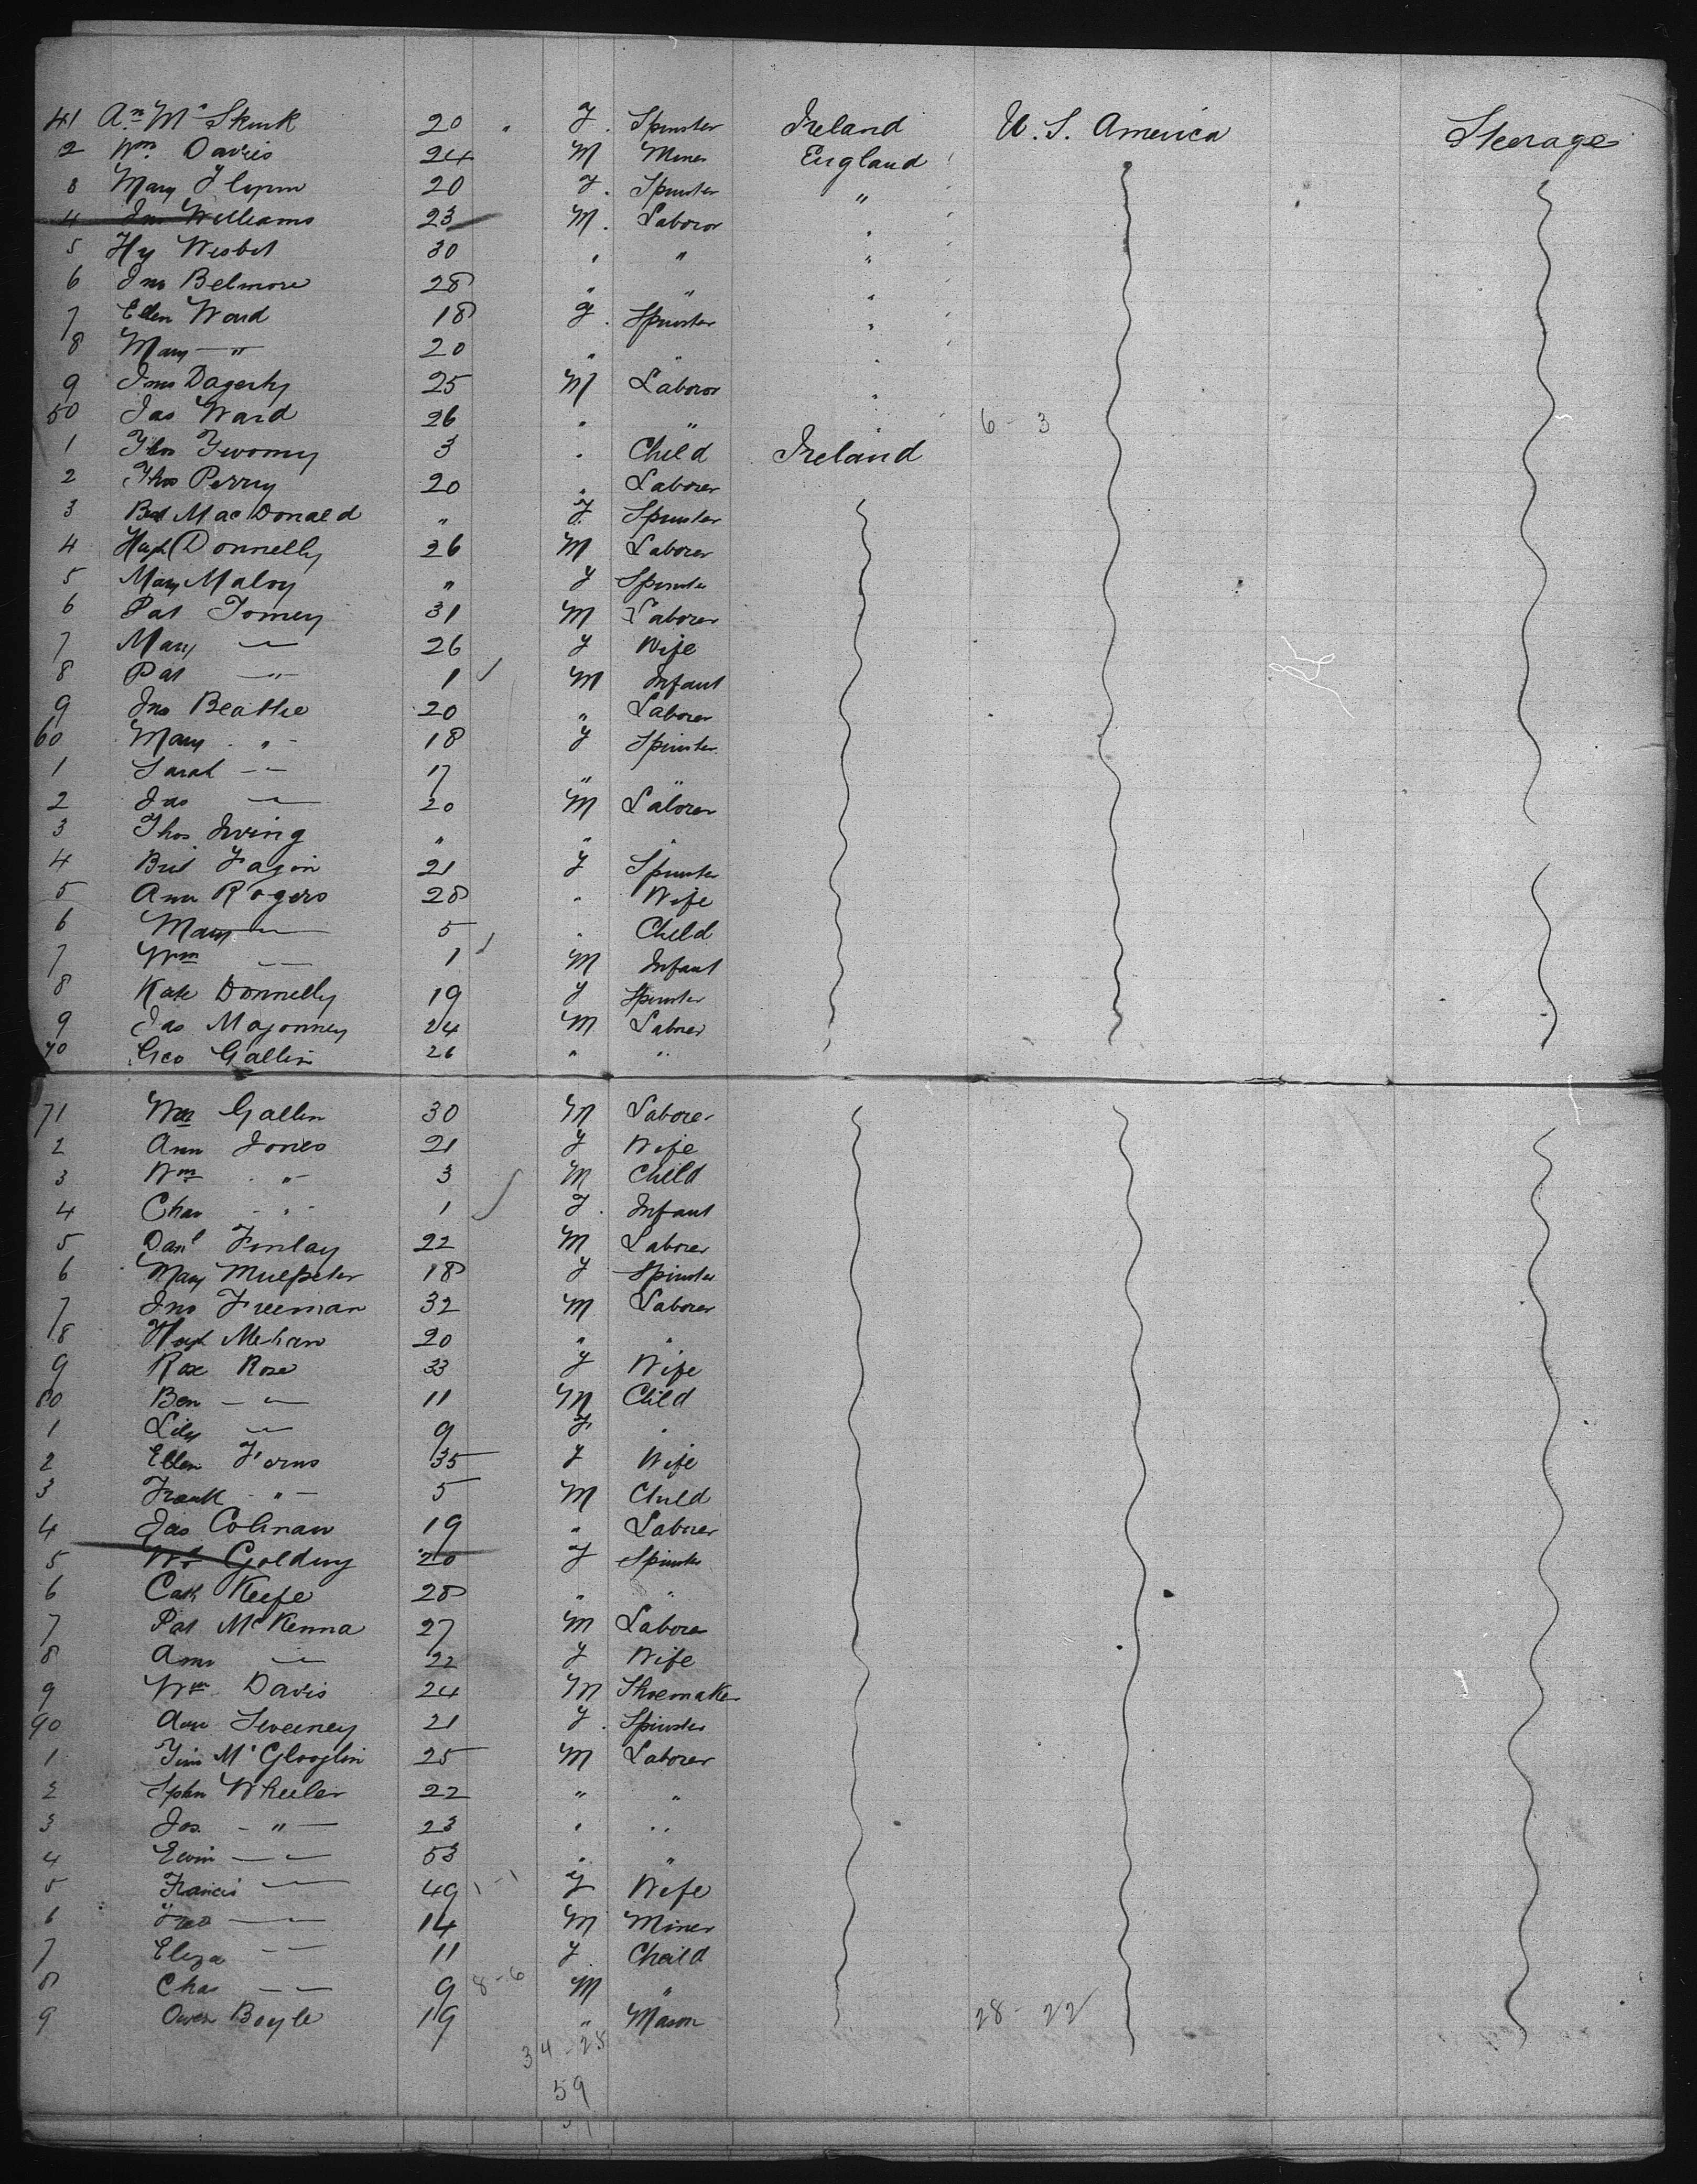 41 An Mc Skurk 20 " F. Spinster Ireland U.S. America Steerage
2 Wm Davis 24 M Miner England
3 Mary Flynn 20 F. Spinster "
4 Jno Williams 23 M. Laboror "
5 Hy Nesbit 30 " " "
6 Jno Belmore 28 " " "
7 Ellen Ward 18 F. Spinster "
8 Mary — " 20 " " "
9 Jno Dagerty 25 M Laboror "
50 Jas Ward 26 " " 6 - 3
1 Thos Twomy 3 " Child Ireland
2 Thos Perry 20 " Laborer
3 Bid MacDonald " F. Spinster
4 Hugh Donnelly 26 M Laborer
5 Mary Maloy " F Spinster
6 Pat Tomey 31 M Laborer
7 Mary — " — 26 F Wife
8 Pat — " — 1 M Infant
9 Jno Beattie 20 " Laborer
60 Mary - " - 18 F Spinster
1 Sarah — " — 17 " "
2 Jas — " — 20 M Laborer
3 Thos Irving " " "
4 Brid Fagin 21 F Spinster
5 Ann Rogers 28 " Wife
6 Mary — " — 5 " Child
7 Wm — " — 1 M Infant
8 Kate Donnelly 19 F Spinster
9 Jas 24 M Laborer
70 Geo Gallin 26 " "
71 Wm Gallin 30 M Laborer
2 Ann Jones 21 F Wife
3 Wm - " - 3 M Child
4 Chas - " - 1 F. Infant
5 Danl Finlay 22 M Laborer
6 Mary Mulpeter 18 F Spinster
7 Jno Freeman 32 M Laborer
8 Hugh Mehan 20 " "
9 Rose Rose 33 F Wife
80 Ben — " — 11 M Child
1 Lily — " — 9 F "
2 Ellen Ferns 35 F Wife
3 Frank - " — 5 M Child
4 Jas Colman 19 " Laborer
5 Golding 20 F Spinster
6 Cath Keefe 28 " "
7 Pat McKenna 27 M Laborer
8 Ann — " — 22 F Wife
9 Wm Davis 24 M Shoemaker
90 Ann Sweeney 21 F. Spinster
1 Tim McGlooglin 25 M Laborer
2 Sphn Wheeler 22 " "
3 Jos. - " — 23 " "
4 Ewin — " — 53 " "
5 Francis — " — 49 1 - 1 F Wife
6 Jno — " — 14 M Miner
7 Eliza — " — 11 F Chaild
8 Chas — " — 9 8 - 6 M "
9 Owen Boyle 19 " Mason 28 - 22
34 - 25
59